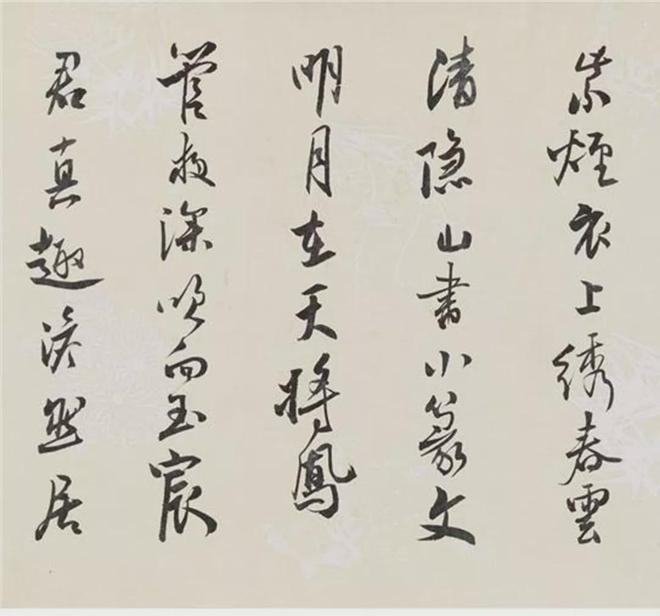 紫煙衣上綉春雲
清隐山書小篆文
明月在天將鳳
管夜深吹向玉宸
君真趣淡然居